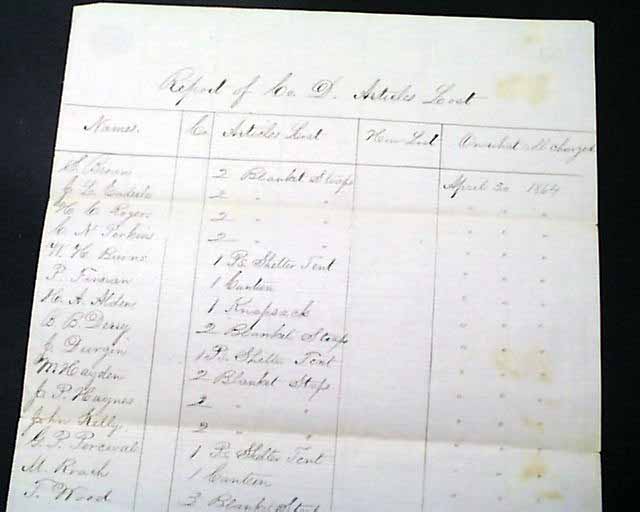 Report of Co. D. Articles Lost
Names. Co Articles Lost How Lost On what roll charged
Brown 2 Blanket Straps April 30 1864
2 " " " " "
H. C. Rogers 2 " " " " "
C. N. Perkins 2 " " " " "
W. H. Burns 1 Pc. Shelter Tent " " "
P. Finnan 1 Canteen " " "
H. A. Alden 1 Knapsack " " "
B. B. Derry 2 Blanket Straps " " "
Durgin 1 Pc. Shelter Tent " " "
M Hayden 2 Blanket Straps " " "
J. P. Haynes 2 " " " " "
John Kelly 2 " " " " "
G. P. Percival 1 Pc Shelter Tent " " "
M. Roach 1 Canteen " " "
T. Wood 3 Blanket Straps " " "